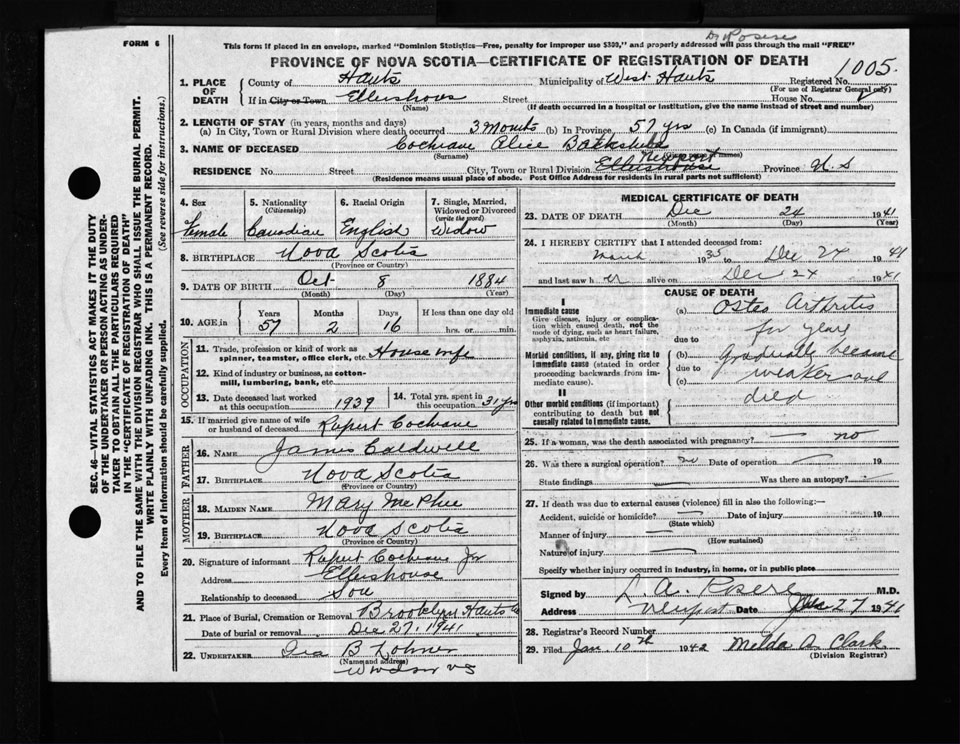 Dr Rosere
FORM 6
This form if placed in an envelope, marked "Dominion Statistics—Free, penalty for improper use $300," and properly addressed will pass through the mail "FREE"
PROVINCE OF NOVA SCOTIA—CERTIFICATE OF REGISTRATION OF DEATH
1005.
1. PLACE OF DEATH
County of Hants Municipality of West Hants Registered No.
(For use of Registrar General only)
If in City or Town Ellershouse Street House No.
(Name) (If death occurred in a hospital or institution, give the name instead of street and number)
2. LENGTH OF STAY (in years, months and days)
(a) In City, Town or Rural Division where death occurred 3 Months (b) In Province 57 yrs (c) In Canada (if immigrant)
3. NAME OF DECEASED Cochrane Alice
(Surname) names)
Newport
RESIDENCE No. Street City, Town or Rural Division Ellershouse Province N S
(Residence means usual place of abode. Post Office Address for residents in rural parts not sufficient)
4. Sex
Female
5. Nationality
(Citizenship)
Canadian
6. Racial Origin
English
7. Single, Married, Widowed or Divorced
(write the word)
Widow
8. BIRTHPLACE Nova Scotia
(Province or Country)
9. DATE OF BIRTH Oct 8 1884
(Month) (Day) (Year)
10. AGE in
Years Months Days If less than one day old
57 2 16 hrs. or min.
OCCUPATION
11. Trade, profession or kind of work as spinner, teamster, office clerk, etc. House wife
12. Kind of industry or business, as cotton-mill, lumbering, bank, etc.
13. Date deceased last worked at this occupation 1939
14. Total yrs. spent in this occupation 31 yrs
15. If married give name of wife or husband of deceased Rupert Cochrane
FATHER
16. NAME James Caldwell
17. BIRTHPLACE Nova Scotia
(Province or Country)
MOTHER
18. MAIDEN NAME Mary McPhee
19. BIRTHPLACE Nova Scotia
(Province or Country)
20. Signature of informant Rupert Cochrane Jr
Address Ellershouse
Relationship to deceased Son
21. Place of Burial, Cremation or Removal Brooklyn Hants Co
Date of burial or removal Dec 27, 1941
22. UNDERTAKER Ira B Lohnes
(Name and address)
Windsor NS
MEDICAL CERTIFICATE OF DEATH
23. DATE OF DEATH Dec 24 1941
(Month) (Day) (Year)
24. I HEREBY CERTIFY that I attended deceased from:
March 1935 to Dec 24 1941
and last saw her alive on Dec 24 1941
CAUSE OF DEATH
I
Immediate cause
Give disease, injury or complication which caused death, not the mode of dying, such as heart failure, asphyxia, asthenia, etc
Morbid conditions, if any, giving rise to immediate cause (stated in order proceeding backwards from immediate cause).
II
Other morbid conditions (if important) contributing to death but not causally related to immediate cause.
(a) Osteo Arthritis
for years
due to
(b) gradually became
due to weaker and
(c) died
25. If a woman, was the death associated with pregnancy? — no
26. Was there a surgical operation? no Date of operation — 19
State findings — Was there an autopsy? —
27. If death was due to external causes (violence) fill in also the following:—
Accident, suicide or homicide? — Date of injury 19
(State which)
Manner of injury —
(How sustained)
Nature of injury —
Specify whether injury occurred in industry, in home, or in public place
Signed by M.D.
Address Newport Date 27 194
28. Registrar's Record Number
29. Filed Jan 10th 1942 Melda A. Clark
(Division Registrar)
SEC. 46—VITAL STATISTICS ACT MAKES IT THE DUTY
OF THE UNDERTAKER OR PERSON ACTING AS UNDER-
TAKER TO OBTAIN ALL THE PARTICULARS REQUIRED
IN THE "CERTIFICATE OF REGISTRATION OF DEATH"
AND TO FILE THE SAME WITH THE DIVISION REGISTRAR WHO SHALL ISSUE THE BURIAL PERMIT.
WRITE PLAINLY WITH UNFADING INK. THIS IS A PERMANENT RECORD.
Every item of information should be carefully supplied. (See reverse side for instructions.)